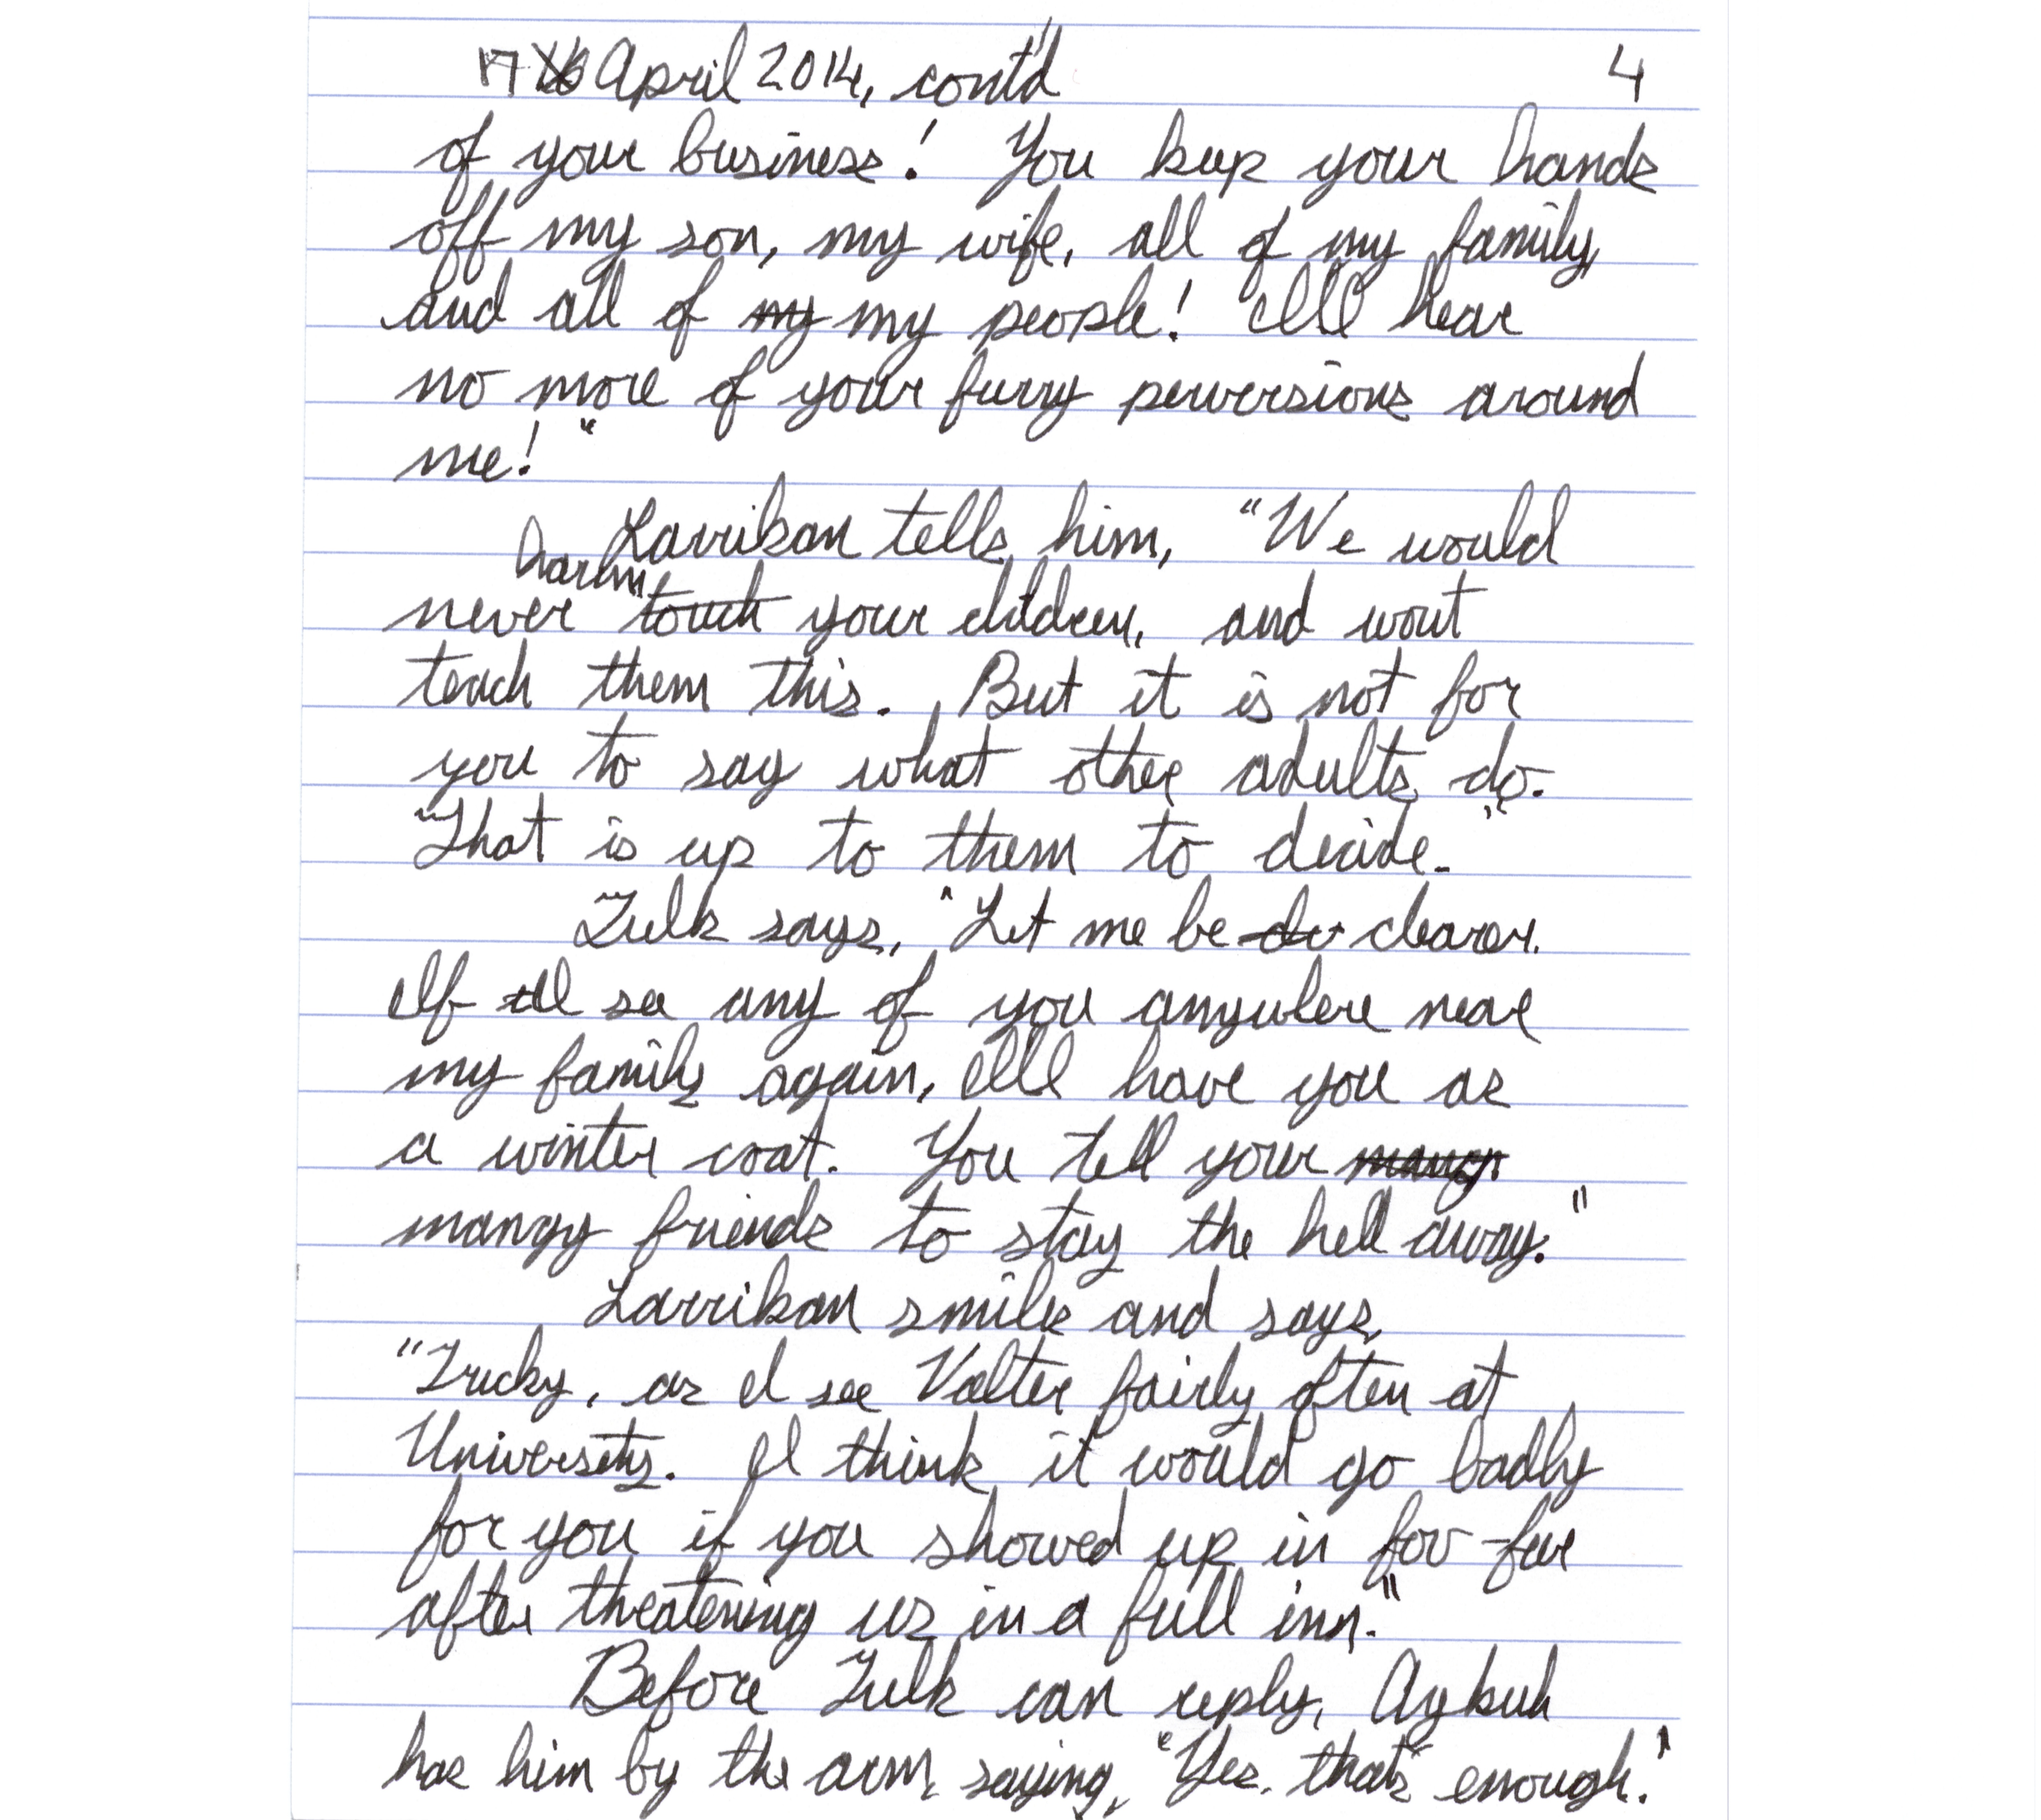 17 April 2014, cont'd 4
of your business! You keep your hands
off my son, my wife, all of my family,
and all of my my people! I'll hear
no more of your furry perversions around
me!"
Larrikan tells him, "We would
harm
never touch your children, and won't
teach them this. But it is not for
you to say what other adults do.
That is up to them to decide."
Tulk says, "Let me be clearer.
If I see any of you anywhere near
my family again, I'll have you as
a winter coat. You tell your mangy
mangy friends to stay the hell away."
Larrikan smiles and says,
"Tricky, as I see Valter fairly often at
University. I think it would go badly
for you if you showed up in for
after threatening us in a full inn."
Before Tulk can reply, Aykuh
has him by the arm, saying, "Yes, that's enough."